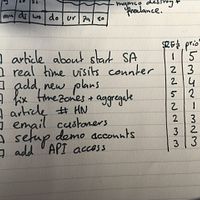 mu di wo do ur za zo
freelance.
SIZE prio
article about start SA 1 5
real time visits counter 2 3
add new plans 2 4
fix timezones + aggregate 5 2
article # HN 2 1
email customers 2 3
setup demo accounts 3 2
add API access 3 3